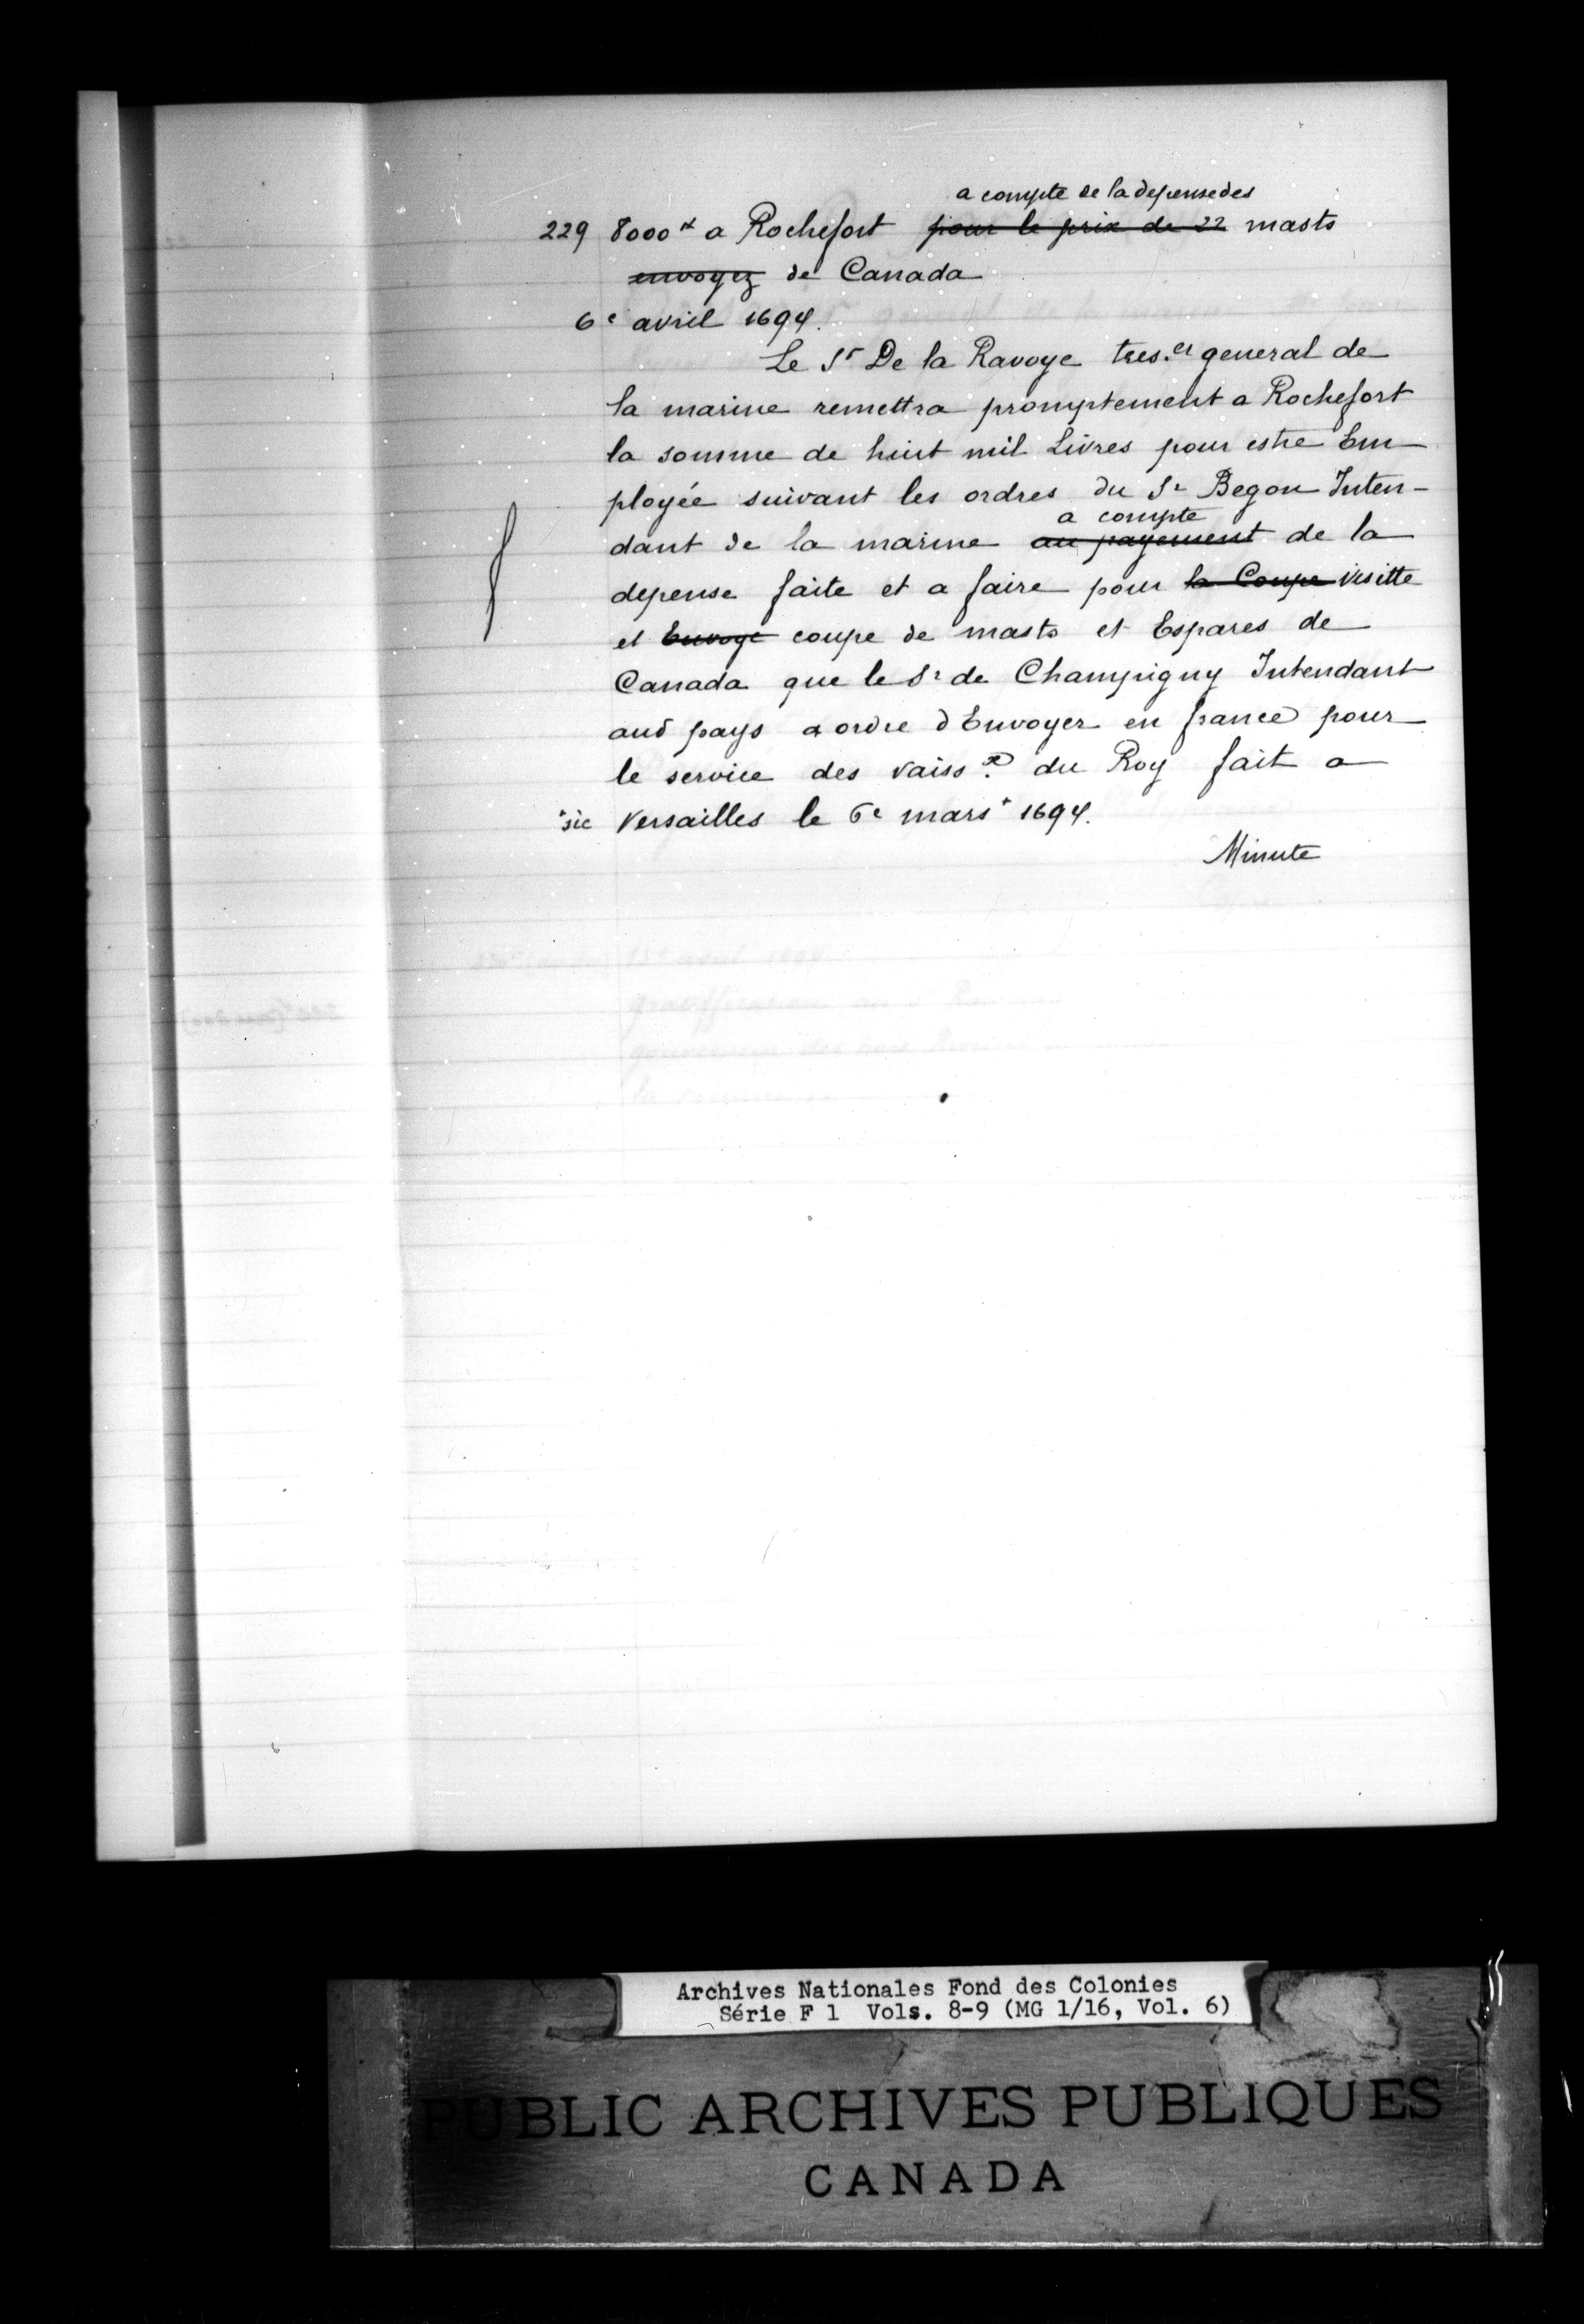 a compte de la depense des
229 8000ᵗᵗ a Rochefort pour le prix de 22 masts
envoyez de Canada
6e avril 1694.
Le Sr De la Ravoye tres.er general de
la marine remettra promptement a Rochefort
la somme de huit mil Livres pour estre Em
ployée suivant les ordres du Sr Begon Inten-
a compte
dant de la marine au payement de la
depense faite et a faire pour la Coupe visitte
et Envoye coupe de masts et Espares de
Canada que le Sr de Champigny Intendant
aud pays a ordre d'Envoyer en france pour
le service des vaiss.x du Roy fait a
+sic Versailles le 6e mars+ 1694.
Minute
Archives Nationales Fond des Colonies
Série F 1 Vols. 8-9 (MG 1/16, Vol. 6)
PUBLIC ARCHIVES PUBLIQUES
CANADA